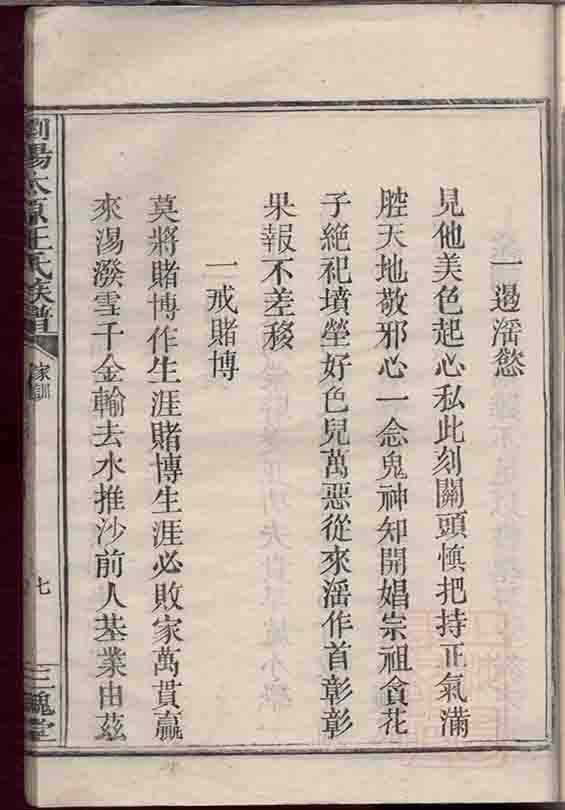 一遏淫慾
見他美色起心私此刻關頭慎把持正氣滿
腔天地敬邪心一念鬼神知開娼祟祖貪花
子絶祀墳塋好色兒萬惡從來淫作首彰彰
果報不差移
一戒賭博
莫將賭博作生涯賭博生涯必敗家萬貫贏
來湯潑雪千金輸去水推沙前人基業由茲
瀏陽太原王氏族譜
家訓
七
三槐堂